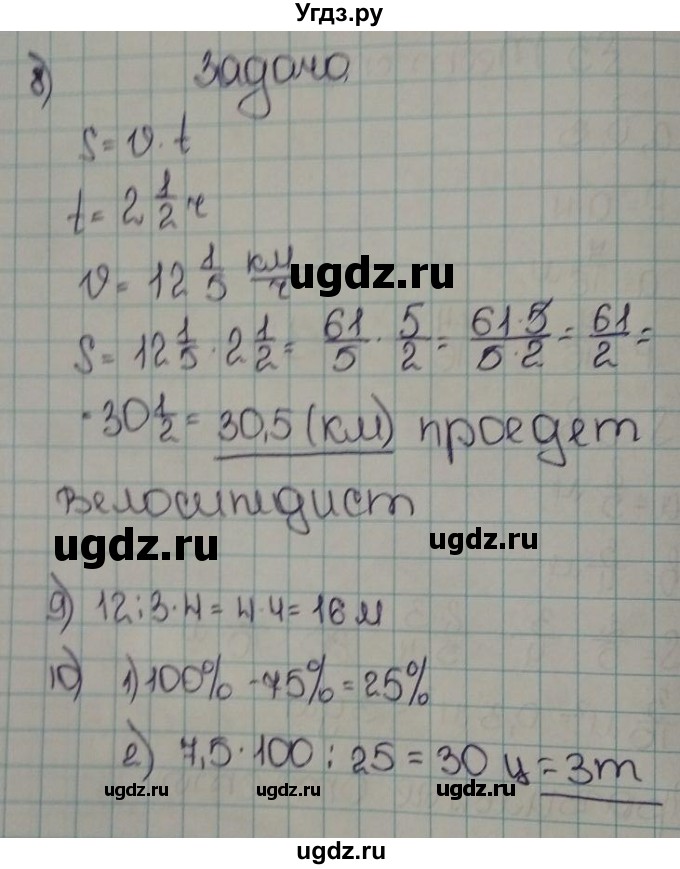 Угдз.ру
8) Задача
S = v · t
t = 2 1/2 ч
v = 12 1/5 км/ч
ugdz.ru
S = 12 1/5 · 2 1/2 = 61/5 · 5/2 = 61·5/5·2 = 61/2 =
= 30 1/2 = 30,5 (км) проедет
велосипедист
ugdz.ru
ugdz.ru
9) 12 : 3 · 4 = 4 · 4 = 16 м
10) 1) 100% - 75% = 25%
2) 7,5 · 100 : 25 = 30 ц = 3т
ugdz.ru
ugdz.ru
ugdz.ru
ugdz.ru
ugdz.ru